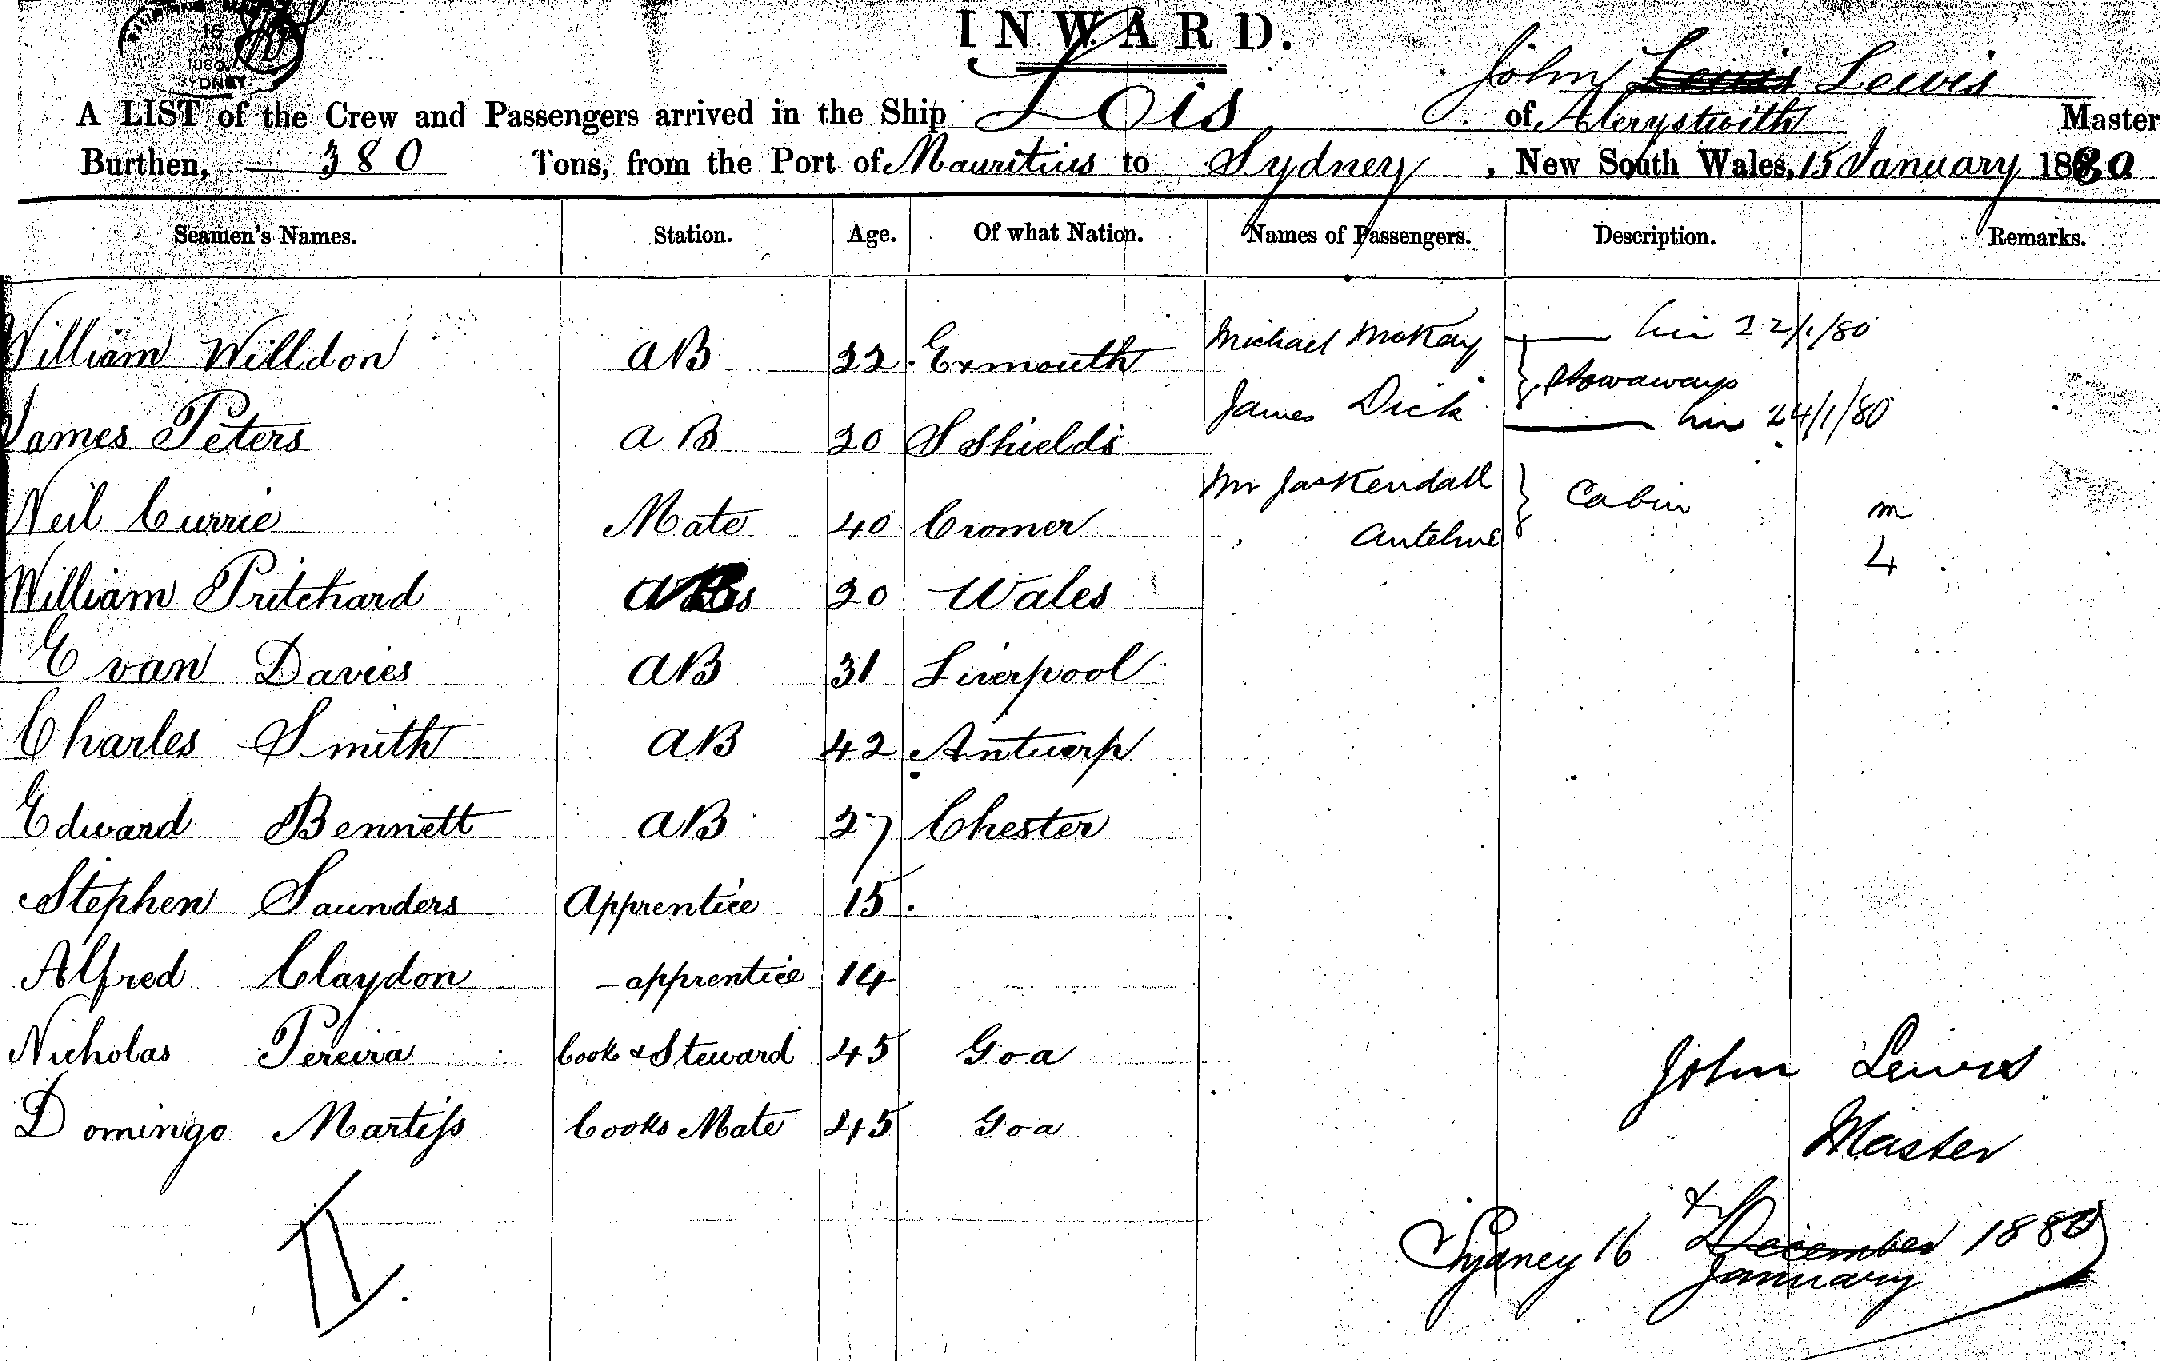 16
1880
SYDNEY
INWARD.
John Lewis Lewis
A LIST of the Crew and Passengers arrived in the Ship Lois of Aberystwith Master
Burthen, 380 Tons, from the Port of Mauritius to Sydney, New South Wales, 15 January 1880
Seamen's Names. Station. Age. Of what Nation. Names of Passengers. Description. Remarks.
William Willdon AB 22 Exmouth Michael McKay 22/1/80
James Peters AB 20 S Shields James Dick Stowaways 24/1/80
Neil Currie Mate 40 Cromer Mr Jas Kendall Cabin m
4
William Pritchard 20 Wales
Evan Davies AB 31 Liverpool
Charles Smith AB 42 Antwerp
Edward Bennett AB 27 Chester
Stephen Saunders Apprentice 15
Alfred Claydon apprentice 14
Nicholas Pereira Cook & Steward 45 Goa
Domingo Martiss Cooks Mate 45 Goa
John Lewis
Master
Sydney 16th December 1880
January